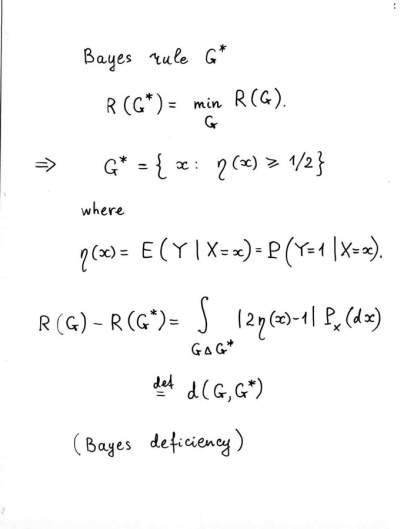 Bayes rule G*
R(G*) = min R(G).
G
⇒ G* = { x : η(x) ⩾ 1/2 }
where
η(x) = E(Y | X=x) = P(Y=1 | X=x).
R(G) − R(G*) = ∫ |2η(x)-1| Pₓ(dx)
G△G*
def
= d(G,G*)
(Bayes deficiency)